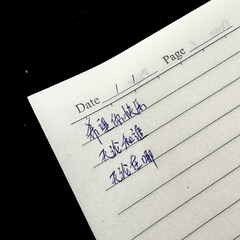 Date / / Page
希望你快乐
无论和谁
无论在哪